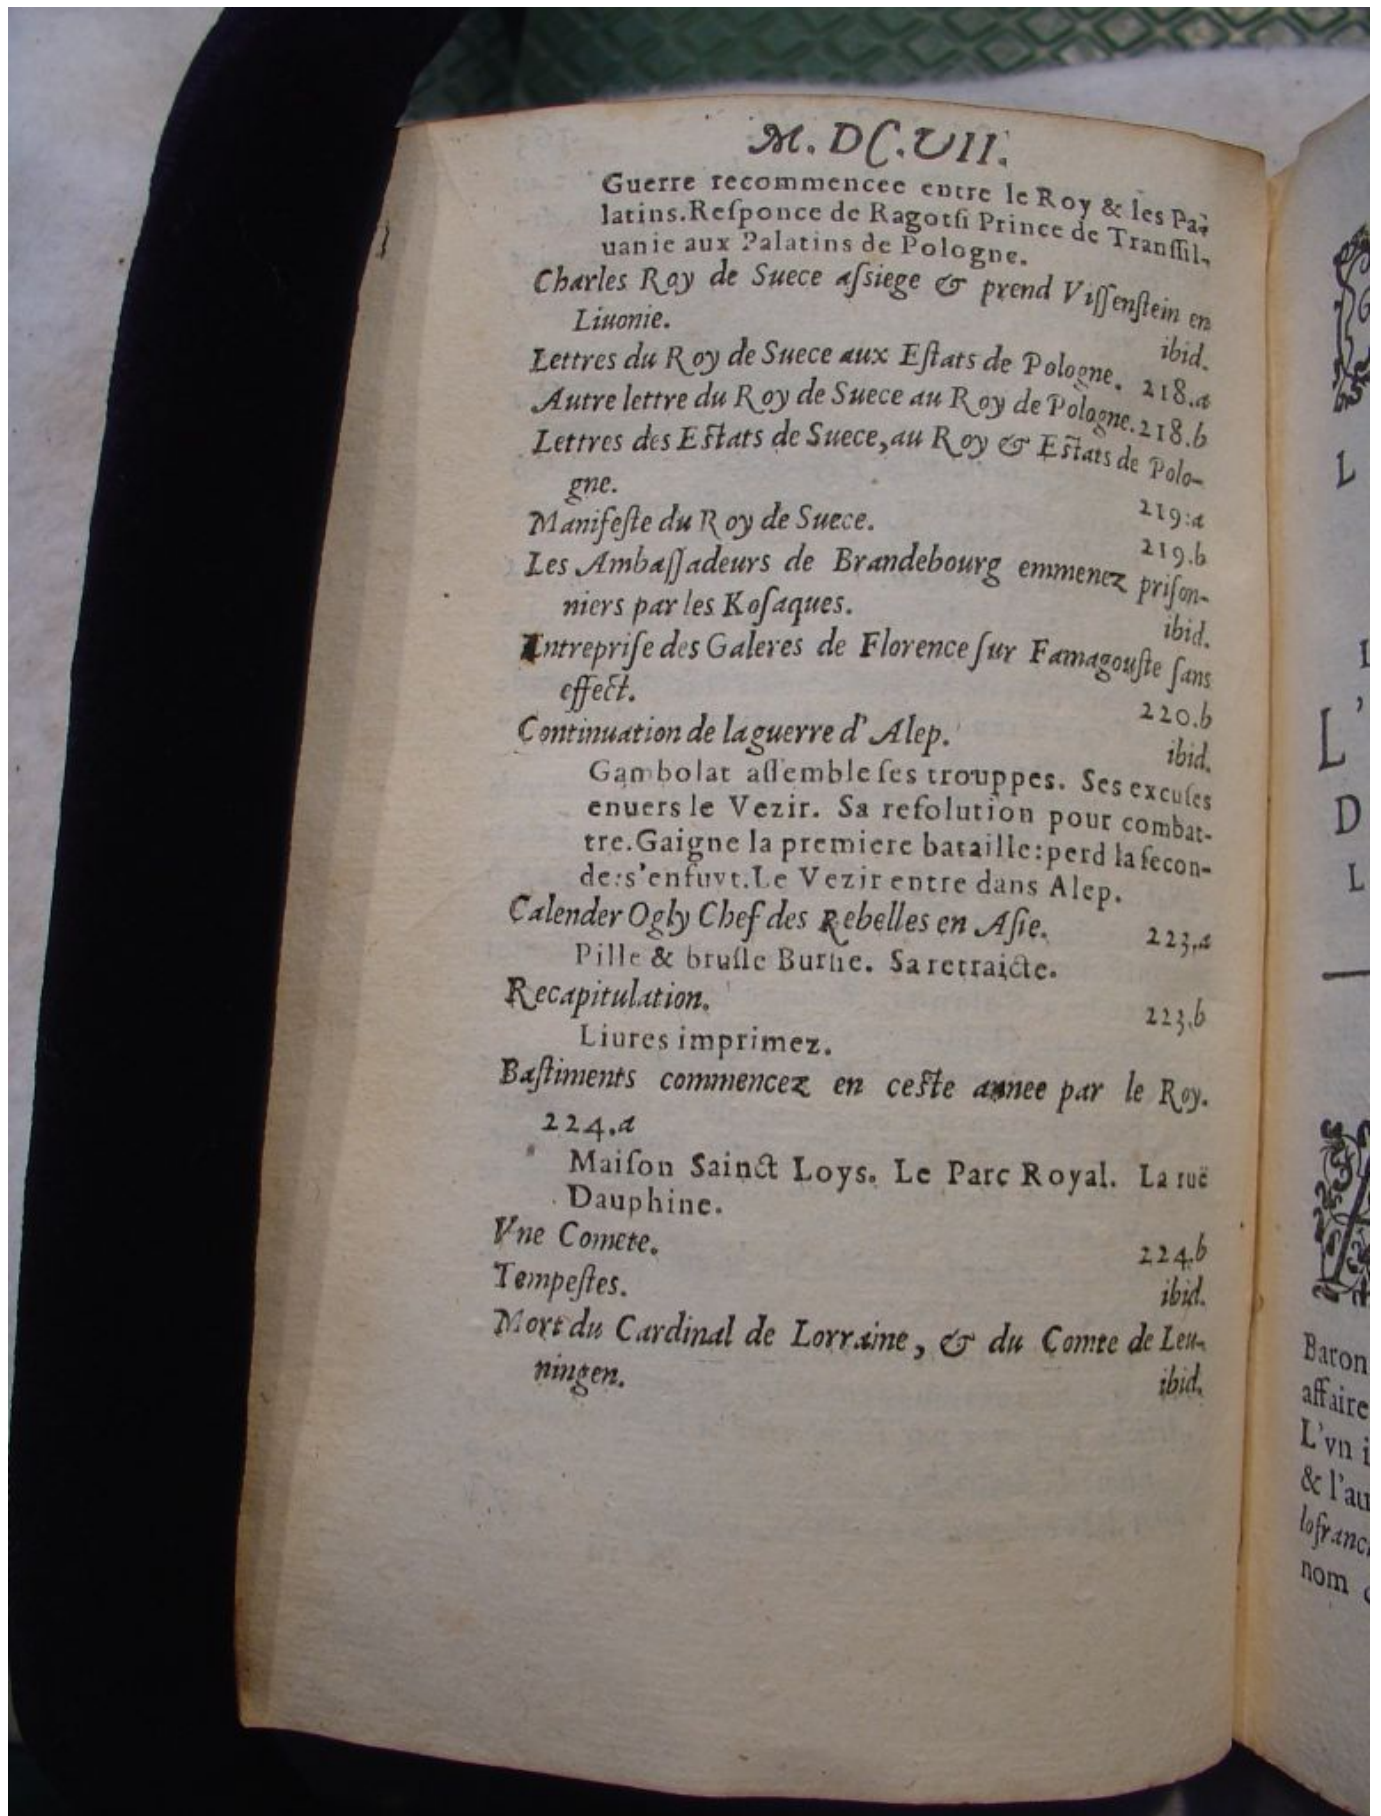 M. DC. VII.
Guerre recommencee entre le Roy & les Pa-
latins. Reſponce de Ragotſi Prince de Tranſſil-
uanie aux Palatins de Pologne.
Charles Roy de Suece aſsiege & prend Viſſenſtein en
Liuonie. ibid.
Lettres du Roy de Suece aux Eſtats de Pologne. 218.a
Autre lettre du Roy de Suece au Roy de Pologne. 218.b
Lettres des Eſtats de Suece, au Roy & Eſtats de Polo-
gne. 219:a
Manifeſte du Roy de Suece. 219.b
Les Ambaſſadeurs de Brandebourg emmenez priſon-
niers par les Koſaques. ibid.
Entrepriſe des Galeres de Florence ſur Famagouſte ſans
effect. 220.b
Continuation de la guerre d'Alep. ibid.
Gambolat aſſemble ſes trouppes. Ses excuſes
enuers le Vezir. Sa reſolution pour combat-
tre. Gaigne la premiere bataille: perd la ſecon-
de: s'enfuyt. Le Vezir entre dans Alep.
Calender Ogly Chef des Rebelles en Aſie. 223.a
Pille & bruſle Burſie. Sa retraicte.
Recapitulation. 223.b
Liures imprimez.
Baſtiments commencez en ceſte annee par le Roy.
224.a
Maiſon Sainct Loys. Le Parc Royal. La ruë
Dauphine.
Vne Comete. 224.b
Tempeſtes. ibid.
Mort du Cardinal de Lorraine, & du Comte de Leu-
ningen. ibid.
L
L'
D
L
Baron
affaire
L'vn i
& l'au
nom